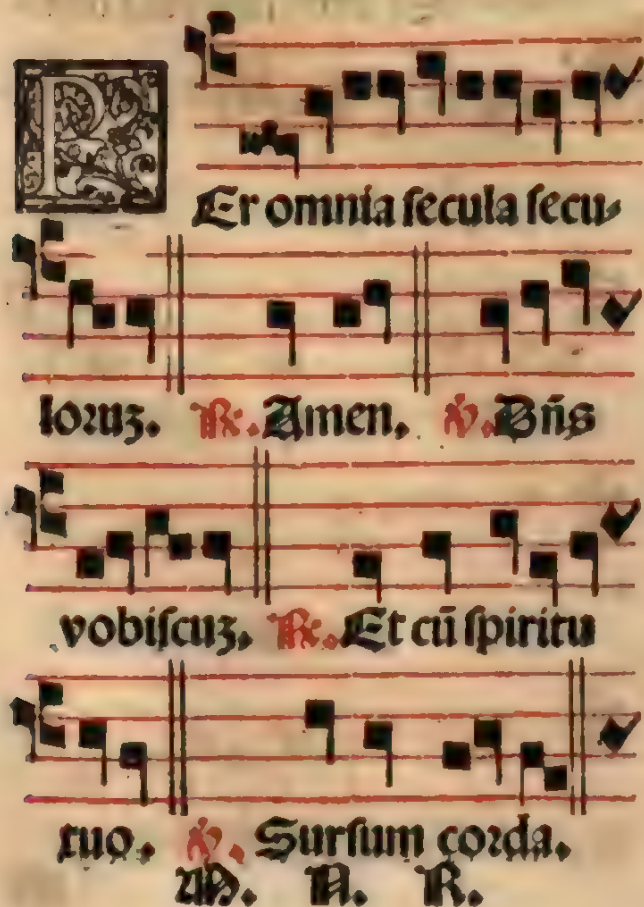 PEr omnia ſecula ſecu-
loꝛuꝫ. ℟. Amen. ℣. Dñs
vobiſcuꝫ. ℟. Et cū ſpiritu
tuo. ℣. Surſum coꝛda.
M. N. R.